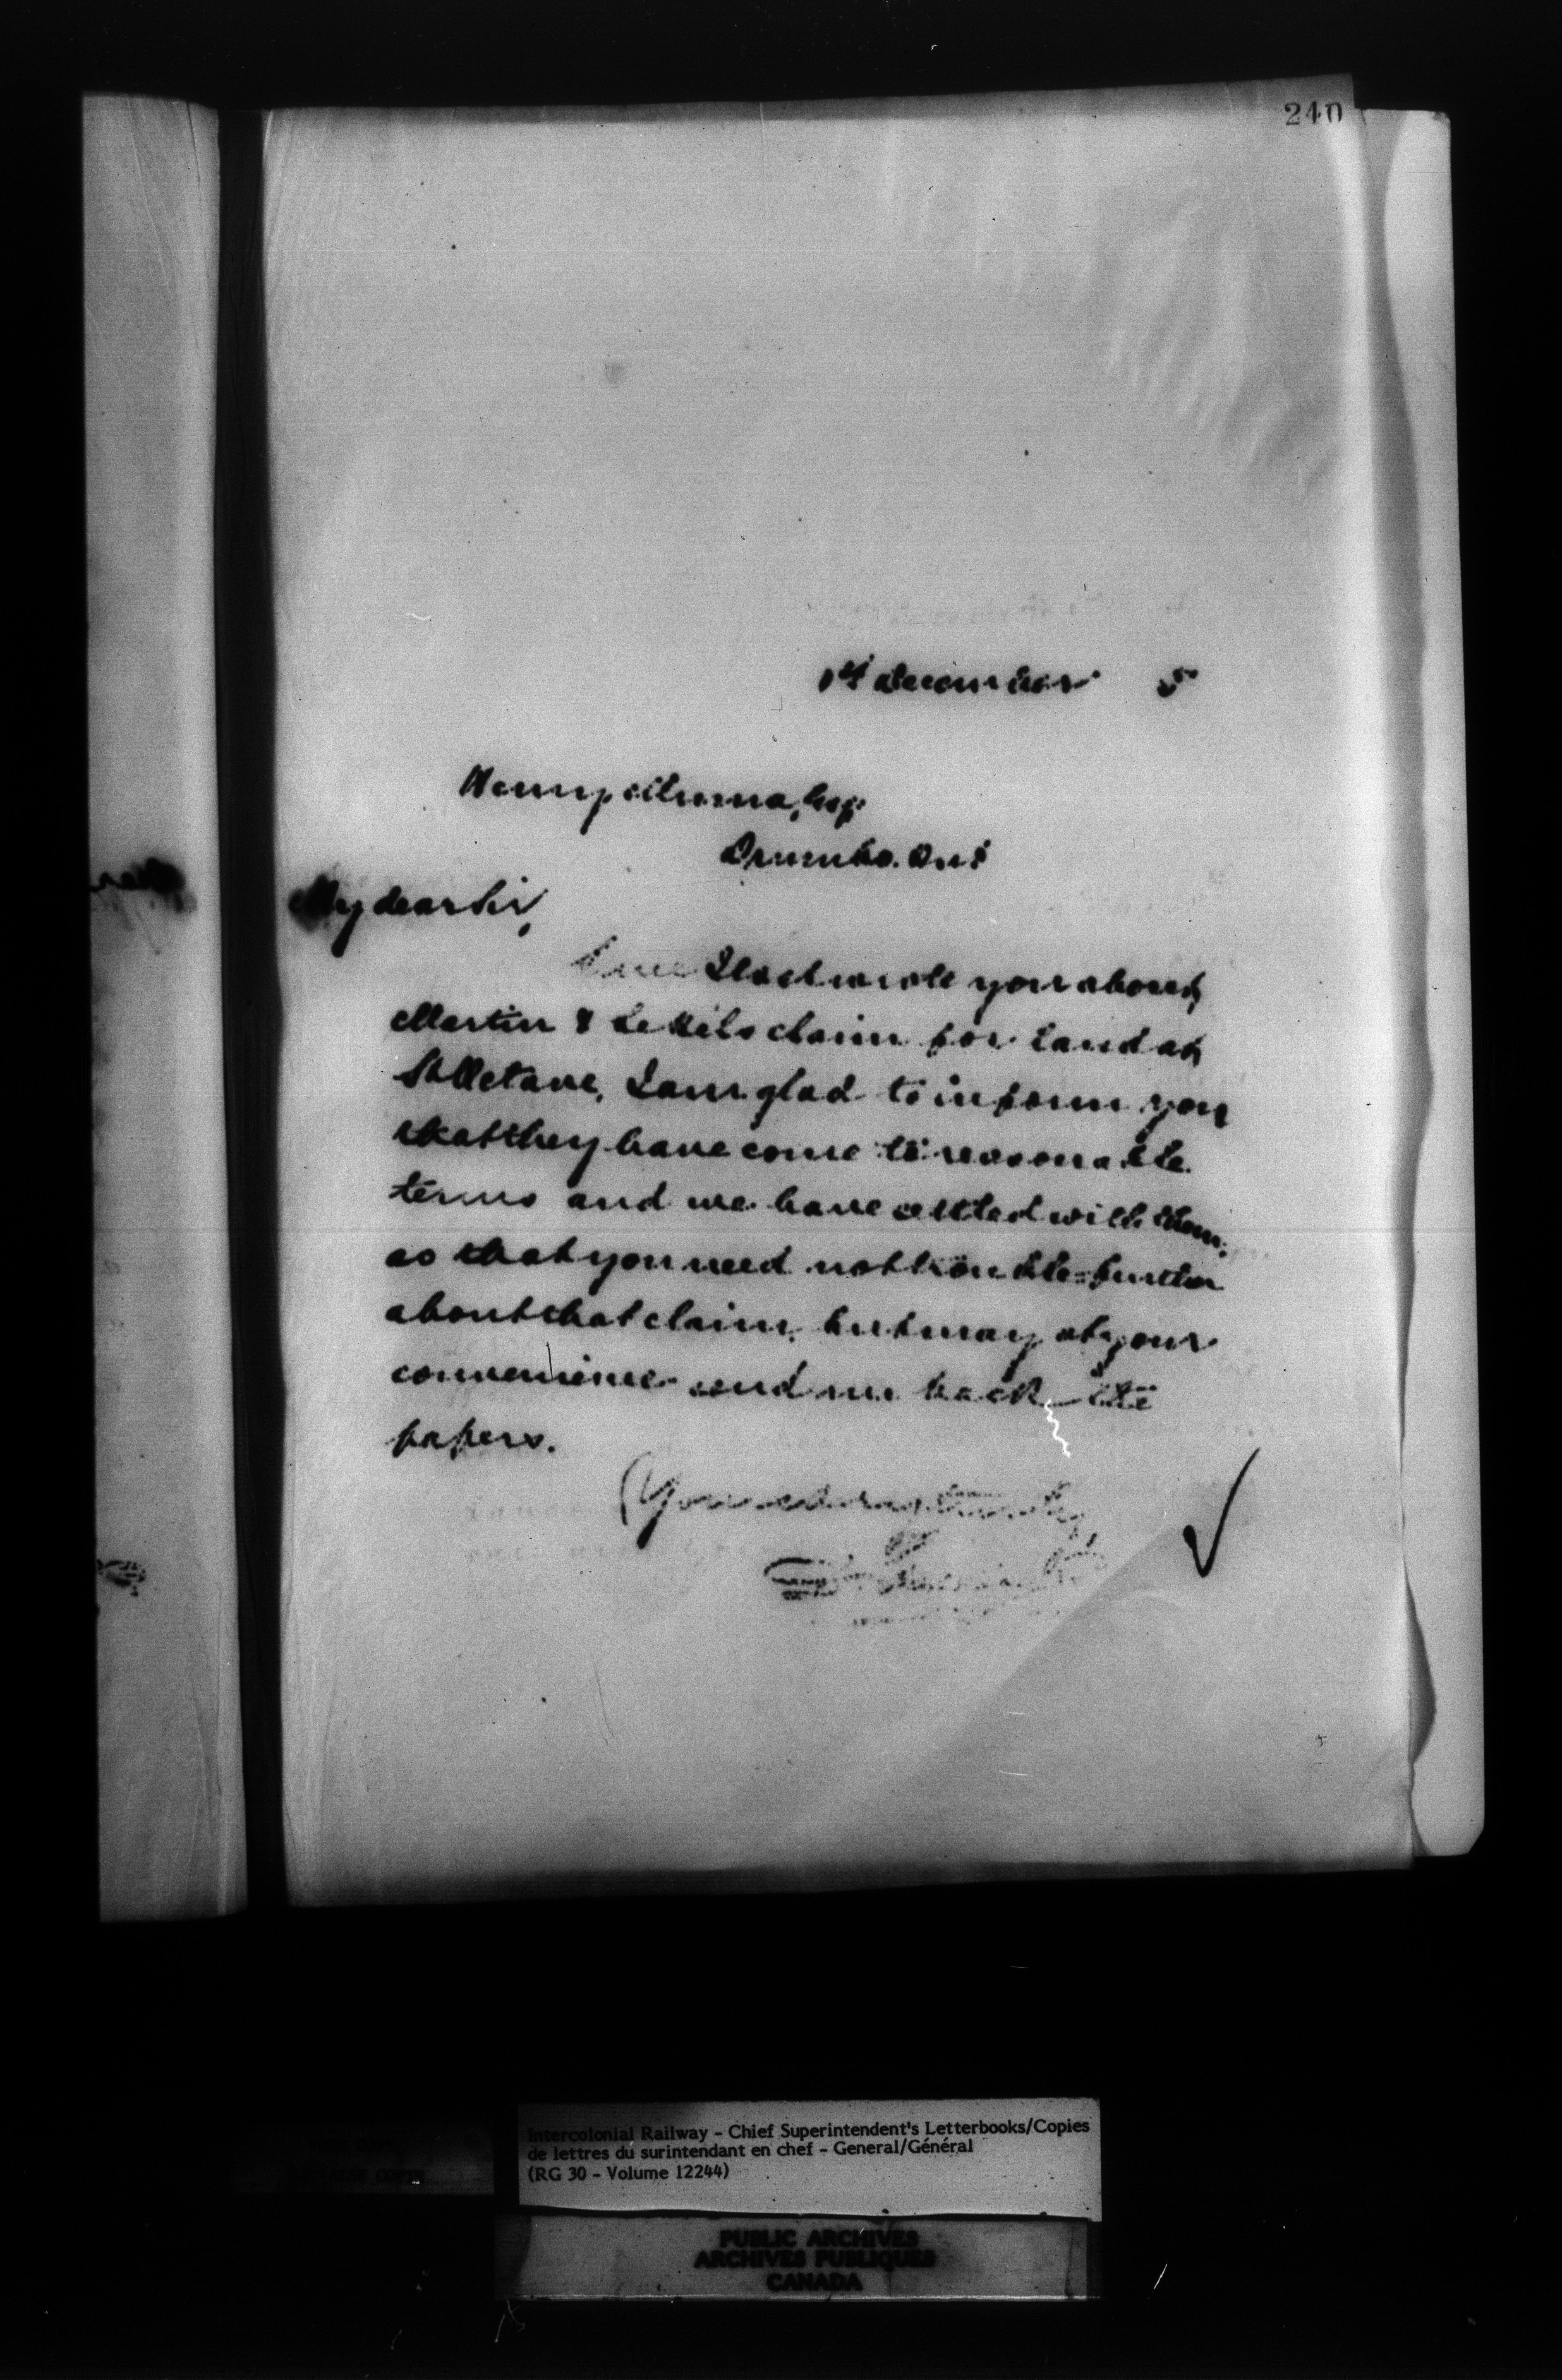 240
1st December 5
Henry Esq
Drumbo. Ont
My dear Sir,
Since I last wrote you about
Martin & claim for land at
St Octave, I am glad to inform you
that they have come to reasonable
terms and we have settled with them;
so that you need not trouble further
about that claim, but may at your
convenience send me back the
papers.
Yours very truly,
Intercolonial Railway - Chief Superintendent's Letterbooks/Copies
de lettres du surintendant en chef - General/Général
(RG 30 - Volume 12244)
PUBLIC ARCHIVES
ARCHIVES PUBLIQUES
CANADA